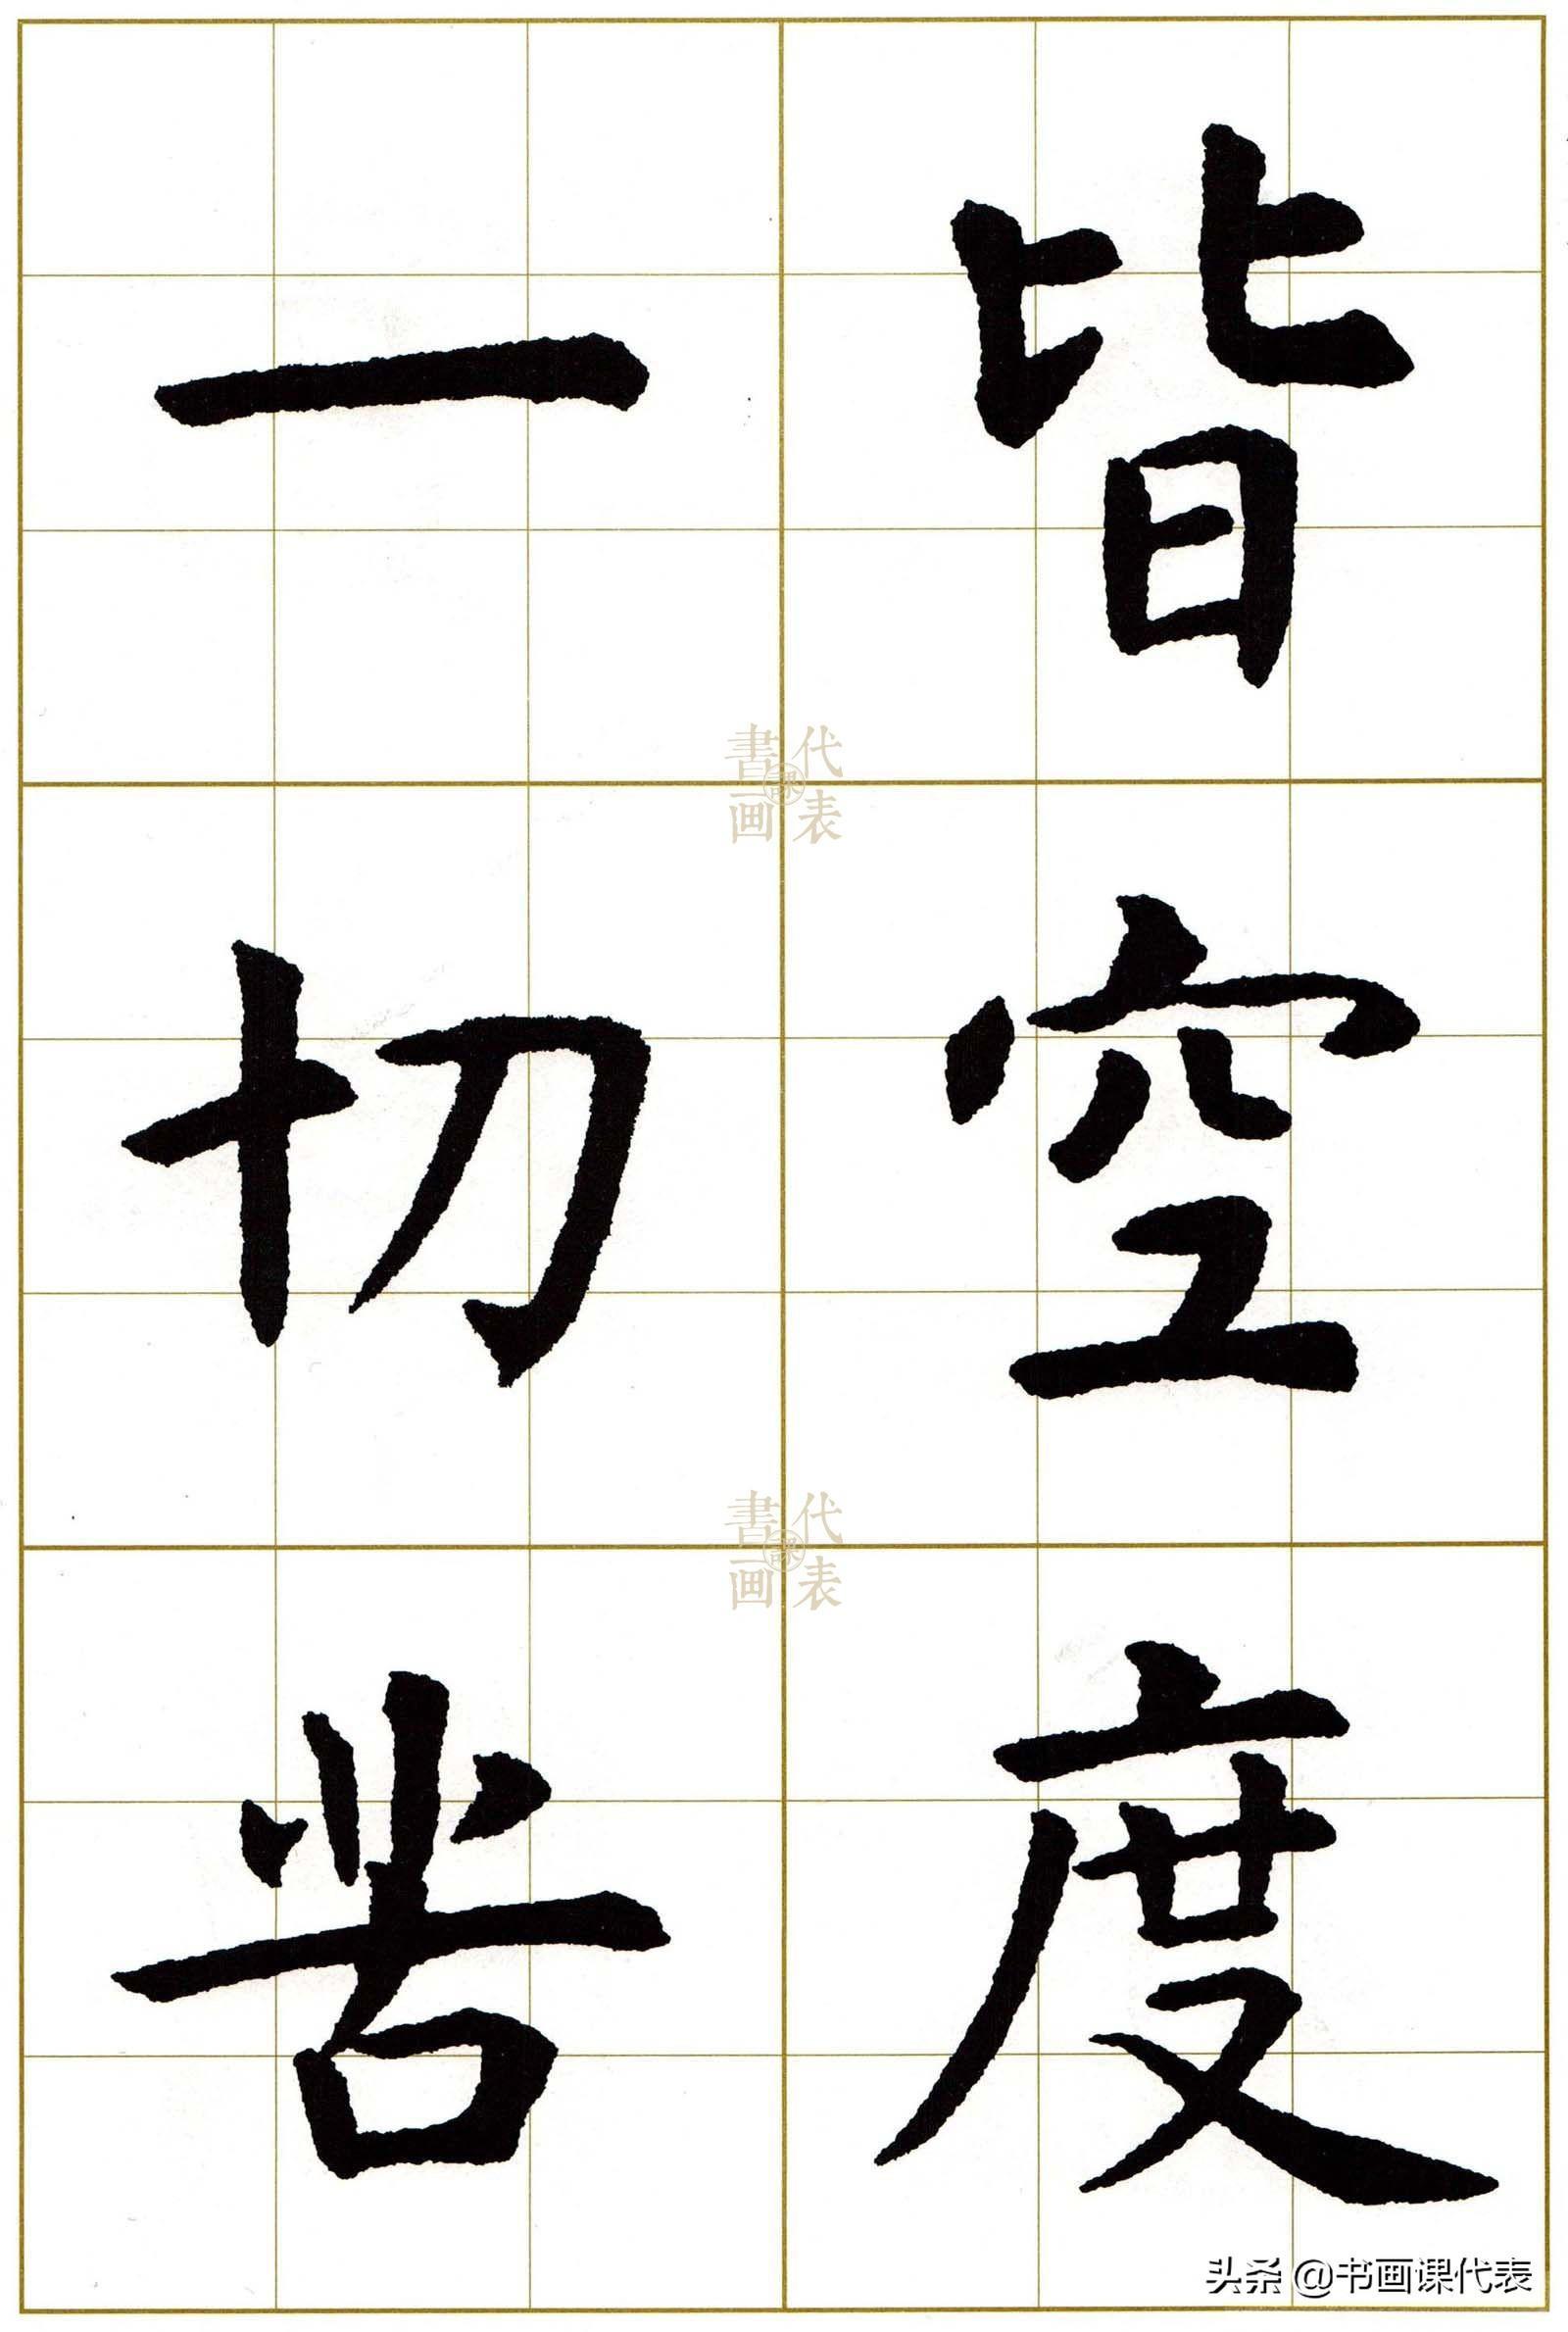 皆空度
一切苦
書画課代表
書画課代表
头条 @书画课代表